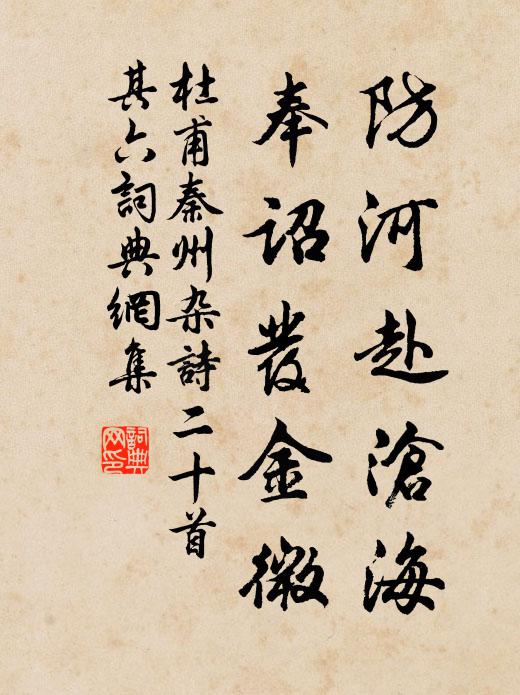 防河赴滄海
奉詔發金微
杜甫秦州杂詩二十首
其六詞典網集
詞典网印